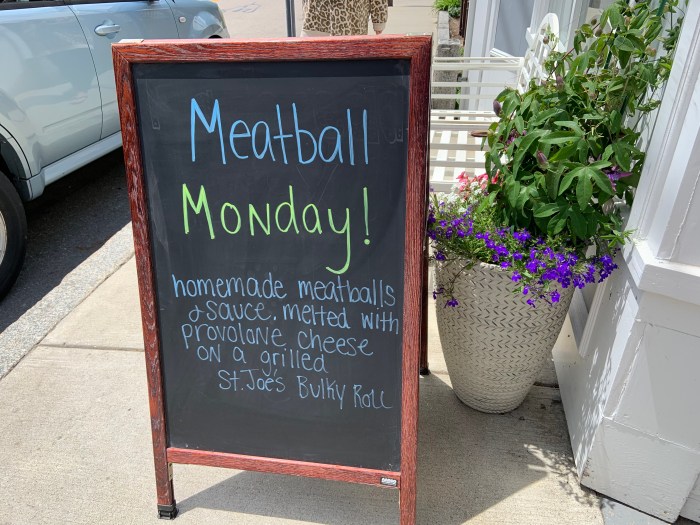 Meatball
Monday!
homemade meatballs
& sauce. melted with
provolone cheese
on a grilled
St. Joe's Bulky Roll